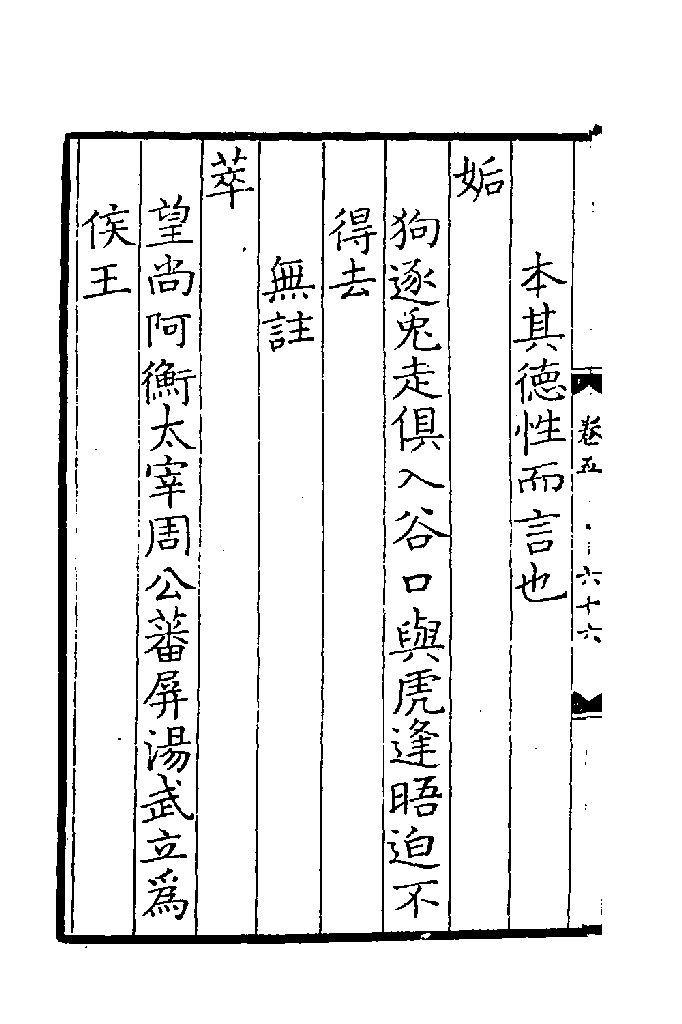 卷五
六十六
本其德性而言也
姤
狗逐兎走俱入谷口與虎逢晤迫不
得去
無註
萃
望尚阿衡太宰周公蕃屏湯武立為
侯王